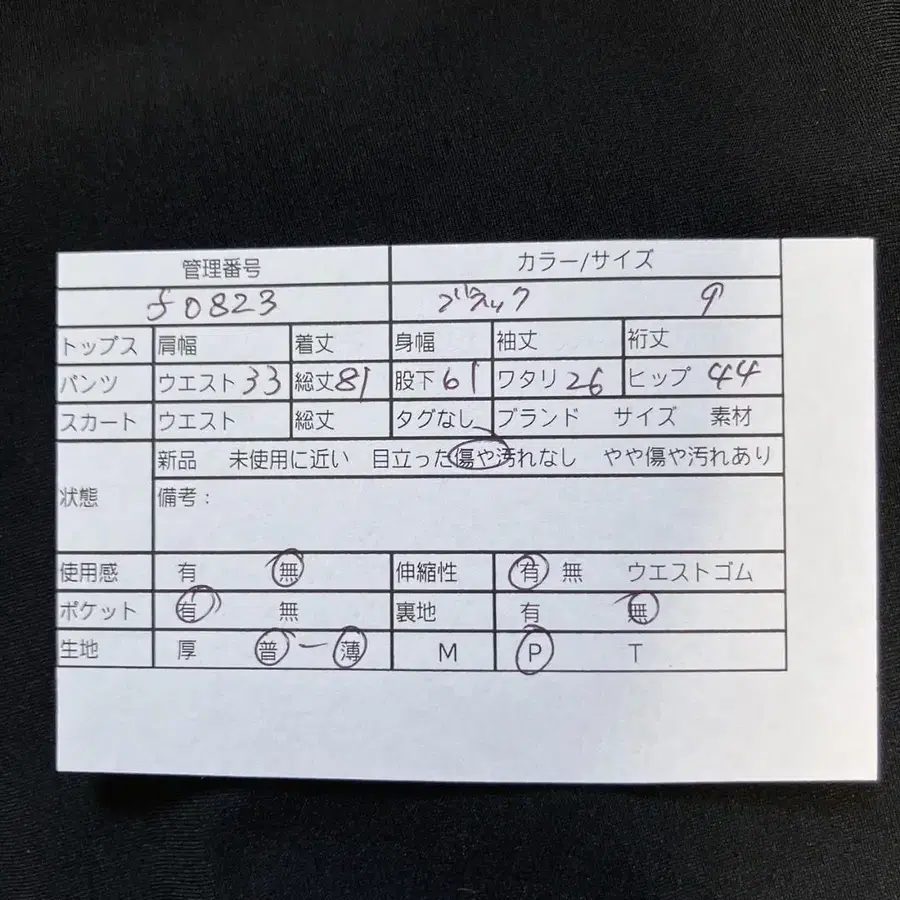 管理番号 カラー/サイズ
f0823 ブラック 9
トップス 肩幅 着丈 身幅 袖丈 裄丈
パンツ ウエスト 33 総丈 81 股下 61 ワタリ 26 ヒップ 44
スカート ウエスト 総丈 タグなし ブランド サイズ 素材
状態 新品 未使用に近い 目立った傷や汚れなし やや傷や汚れあり
備考:
使用感 有 無 伸縮性 有 無 ウエストゴム
ポケット 有 無 裏地 有 無
生地 厚 普 ー 薄 M P T